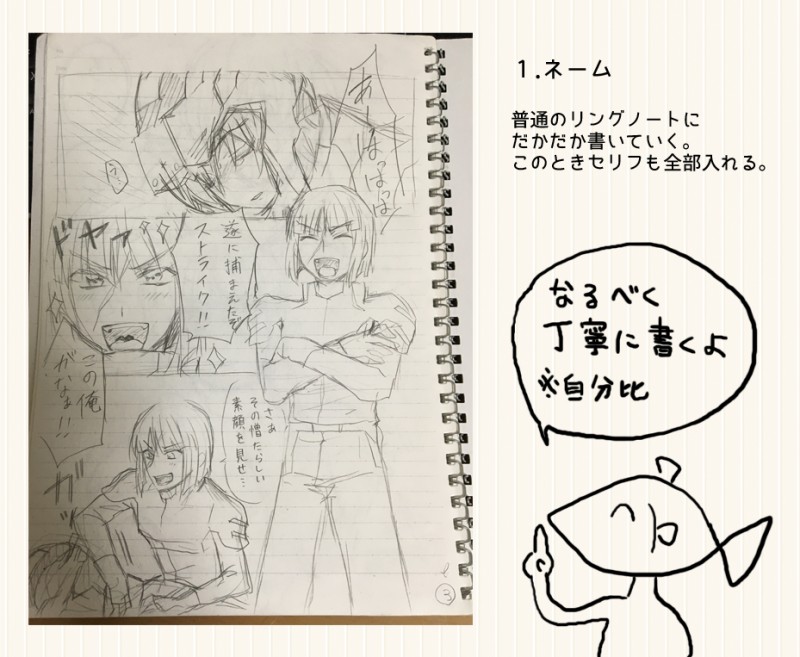 1.ネーム
普通のリングノートに
だかだか書いていく。
このときセリフも全部入れる。
なるべく
丁寧に書くよ
※自分比
あーはっはっはっは
?
遂に捕まえたぞ
ストライク!!
ドヤァ
この俺
がなぁ!!
さぁ
その憎たらしい
素顔を見せ…
ガッ
3